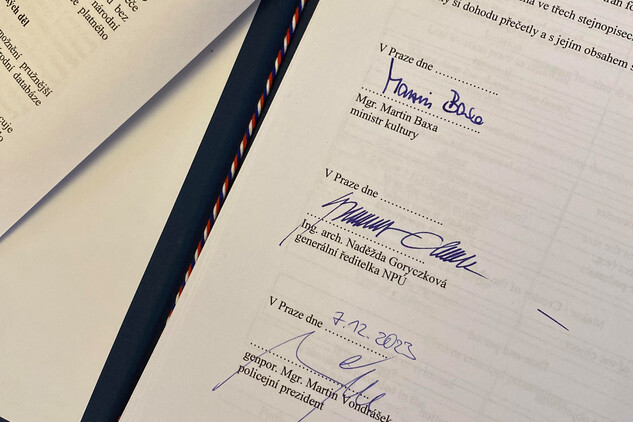 eče
d bez
národní
e platného
kých děl
ožnění pružnější
rodní databáze
cuje
na ve třech stejnopisech
y si dohodu přečetly a s jejím obsahem s
V Praze dne ....................
Martin Baxa
Mgr. Martin Baxa
ministr kultury
V Praze dne ....................
Ing. arch. Naděžda Goryczková
generální ředitelka NPÚ
V Praze dne 7.12.2023
genpor. Mgr. Martin Vondrášek
policejní prezident